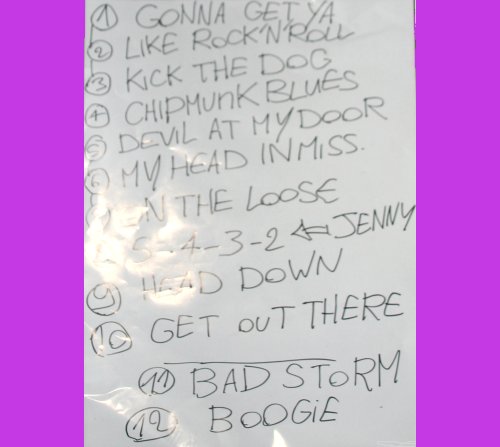 1 GONNA GET YA
2 LIKE ROCK'N'ROLL
3 KICK THE DOG
4 CHIPMUNK BLUES
5 DEVIL AT MY DOOR
6 MY HEAD IN MISS.
7 ON THE LOOSE
5-4-3-2 ⇐ JENNY
9 HEAD DOWN
10 GET OUT THERE
11 BAD STORM
12 BOOGiE